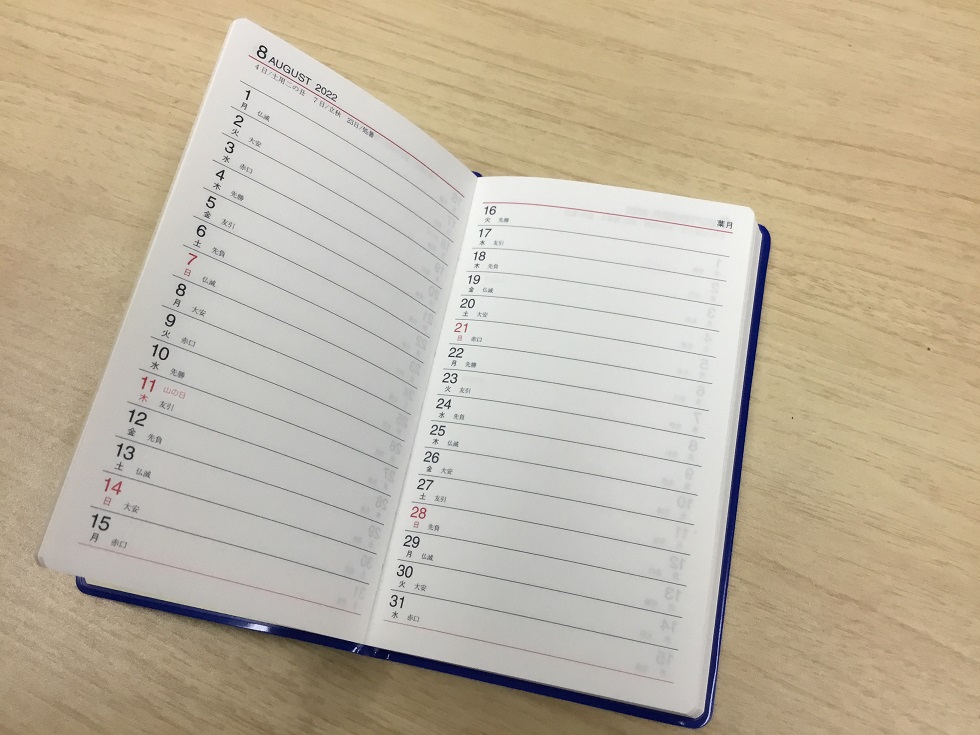 8 AUGUST 2022
4日/土用二の丑 7日/立秋 23日/処暑
1
月 仏滅
2
火 大安
3
水 赤口
4
木 先勝
5
金 友引
6
土 先負
7
日 仏滅
8
月 大安
9
火 赤口
10
水 先勝
11 山の日
木 友引
12
金 先負
13
土 仏滅
14
日 大安
15
月 赤口
葉月
16
火 先勝
17
水 友引
18
木 先負
19
金 仏滅
20
土 大安
21
日 赤口
22
月 先勝
23
火 友引
24
水 先負
25
木 仏滅
26
金 大安
27
土 友引
28
日 先負
29
月 仏滅
30
火 大安
31
水 赤口